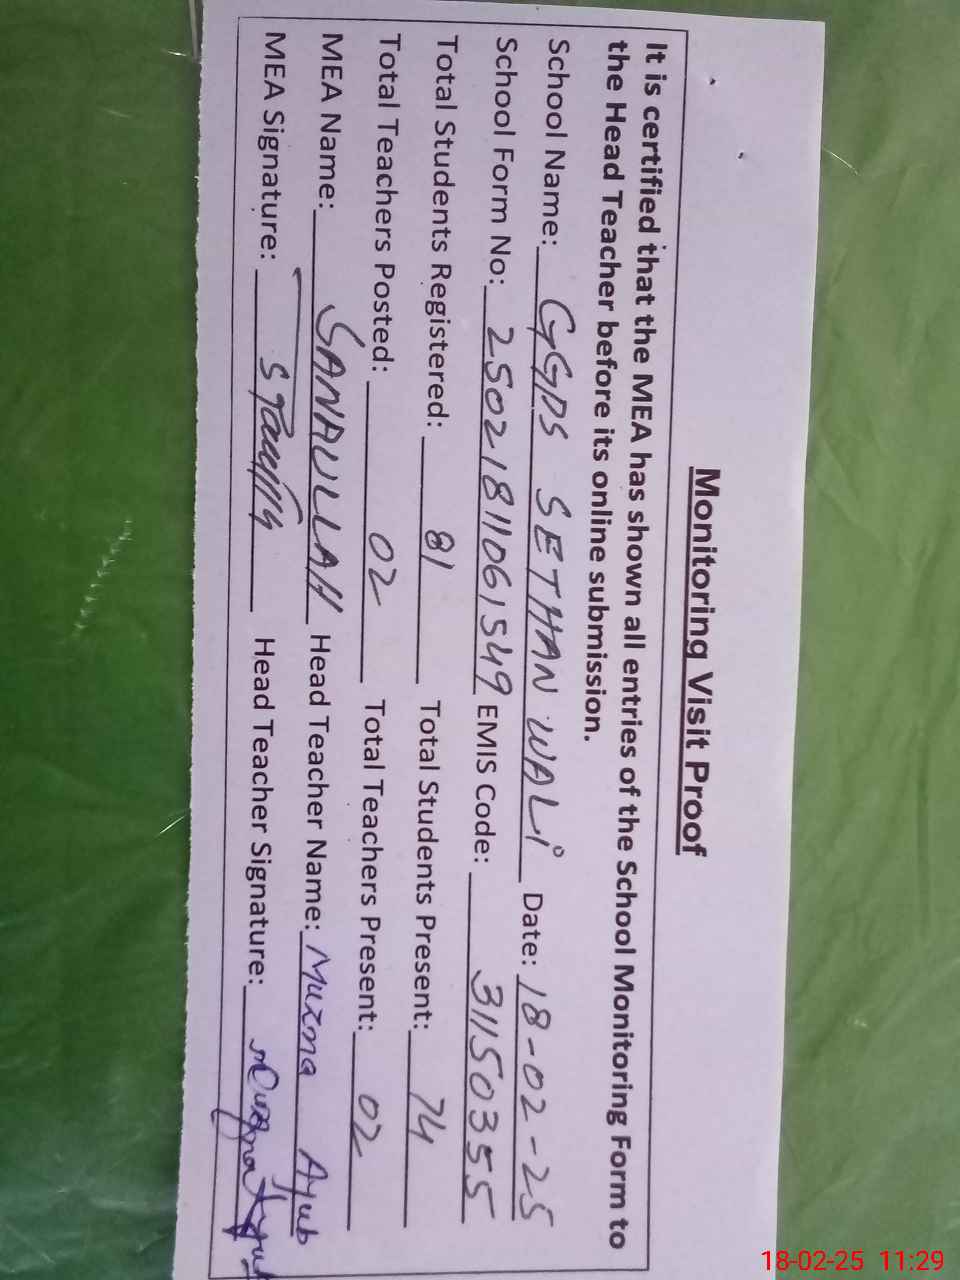 Monitoring Visit Proof
It is certified that the MEA has shown all entries of the School Monitoring Form to
the Head Teacher before its online submission.
School Name: GGPS SETHAN WALI Date: 18-02-25
School Form No: 25021811061549 EMIS Code: 31150355
Total Students Registered: 81 Total Students Present: 74
Total Teachers Posted: 02 Total Teachers Present: 02
MEA Name: SANAULLAH Head Teacher Name: Muzna Ayub
MEA Signature: Head Teacher Signature: Muzna Ayub
18-02-25 11:29